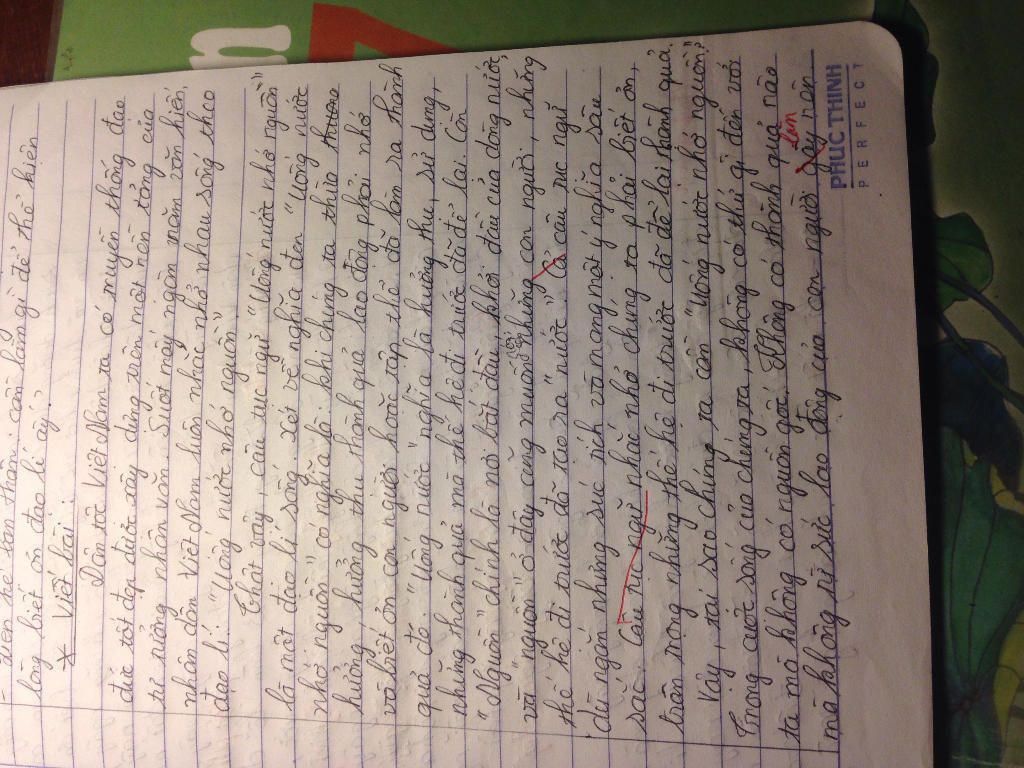 liên hệ bản thân: cần làm gì để thể hiện
lòng biết ơn đạo lí ấy?
* Viết bài:
Dân tộc Việt Nam ta có truyền thống đạo
đức tốt đẹp được xây dựng trên một nền tảng của
tư tưởng nhân văn. Suốt mấy ngàn năm văn hiến,
nhân dân Việt Nam luôn nhắc nhở nhau sống theo
đạo lí: "Uống nước nhớ nguồn".
Thật vậy, câu tục ngữ "Uống nước nhớ nguồn"
là một đạo lí sống. Xét về nghĩa đen "Uống nước
nhớ nguồn" có nghĩa là khi chúng ta thừa
hưởng hưởng thụ thành quả lao động phải nhớ
và biết ơn con người hoặc tập thể đã làm ra thành
quả đó. "Uống nước" nghĩa là hưởng thụ, sử dụng,
những thành quả mà thế hệ đi trước đã để lại. Còn
"Nguồn" chính là nơi bắt đầu, khởi đầu của dòng nước,
và "nguồn" ở đây cũng muốn nói đến những con người, những
thế hệ đi trước đã tạo ra "nước". Cả câu tục ngữ
dù ngắn nhưng súc tích và mang một ý nghĩa sâu
sắc. Câu tục ngữ nhắc nhở chúng ta phải biết ơn,
trân trọng những thế hệ đi trước đã để lại thành quả.
Vậy, tại sao chúng ta cần "Uống nước nhớ nguồn"?
Trong cuộc sống của chúng ta, không có thứ gì đến với
ta mà không có nguồn gốc. Không có thành quả nào
mà không từ sức lao động của con người gây nên
Làm
n
7
PHUC THINH
PERFECT